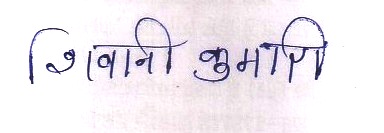 शिवानी कुमारि